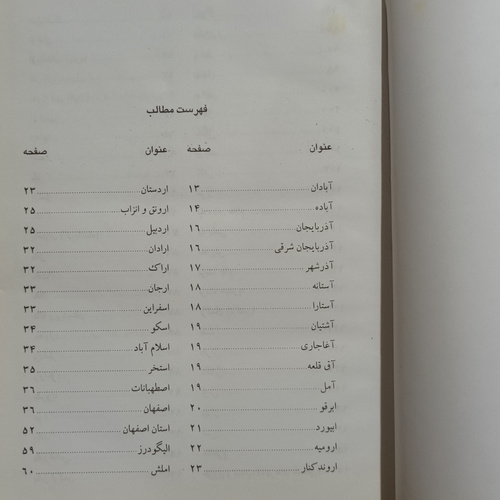 فهرست مطالب
عنوان صفحه
آبادان ۱۳
آباده ۱۴
آذربایجان ۱۶
آذربایجان شرقی ۱۶
آذرشهر ۱۷
آستانه ۱۸
آستارا ۱۸
آشتیان ۱۹
آغاجاری ۱۹
آق قلعه ۱۹
آمل ۱۹
ابرقو ۲۰
ابیورد ۲۱
ارومیه ۲۲
اروندکنار ۲۳
عنوان صفحه
اردستان ۲۳
ارونق و انزاب ۲۵
اردبیل ۲۵
ارادان ۳۲
اراک ۳۲
ارجان ۳۳
اسفراین ۳۳
اسکو ۳۴
اسلام آباد ۳۴
استخر ۳۵
اصطهبانات ۳۶
اصفهان ۳۶
استان اصفهان ۵۲
الیگودرز ۵۹
املش ۶۰